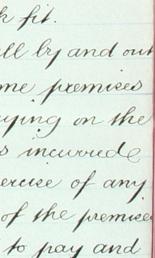 k fit.
all by and out
me premises
ying on the
s incurred
ercise of any
of the premise
to pay and